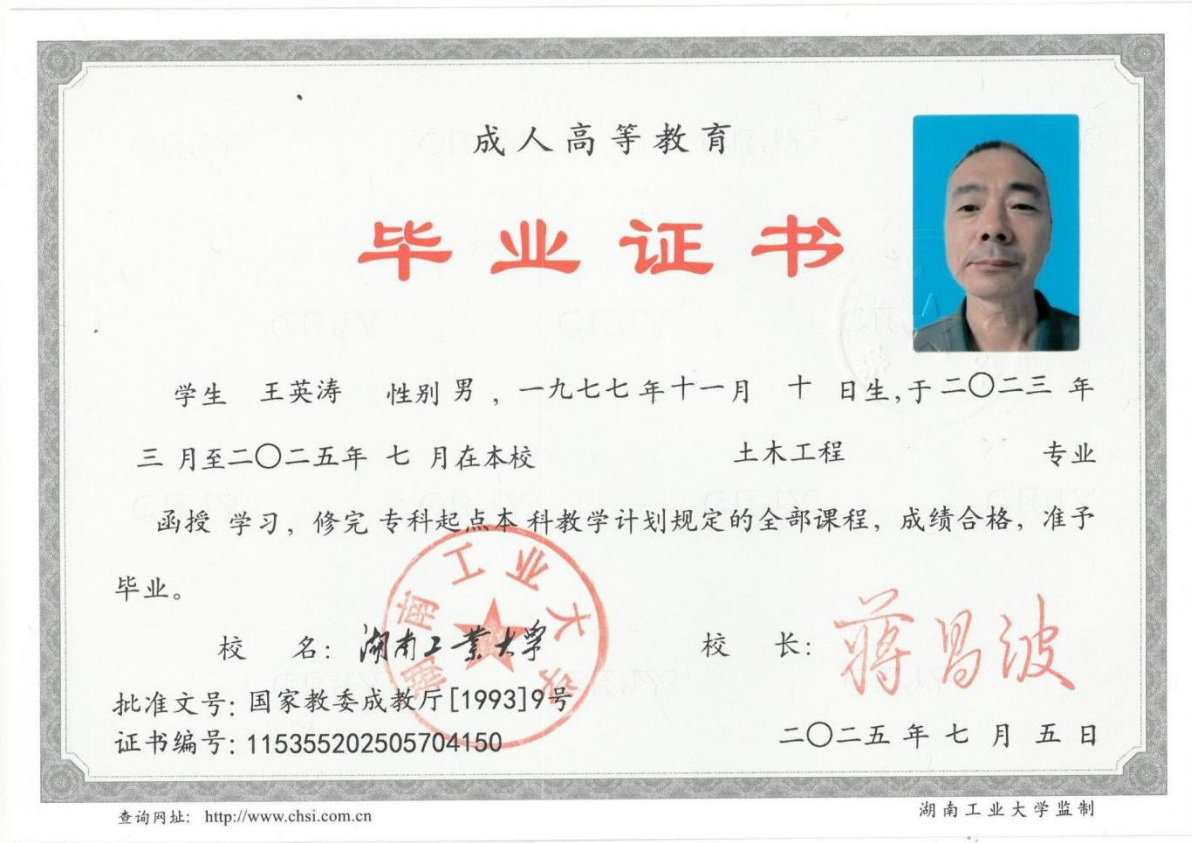 成人高等教育
毕业证书
学生 王英涛 性别 男 ，一九七七年十一月 十 日生,于二〇二三 年
三 月至二〇二五年 七 月在本校 土木工程 专业
函授 学习，修完 专科起点本 科教学计划规定的全部课程，成绩合格，准予
毕业。
校 名：湖南工業大學 校 长：蒋昌波
湖南工业大学
批准文号：国家教委成教厅[1993]9号
证书编号：115355202505704150 二〇二五 年 七 月 五 日
查询网址： http://www.chsi.com.cn 湖南工业大学监制